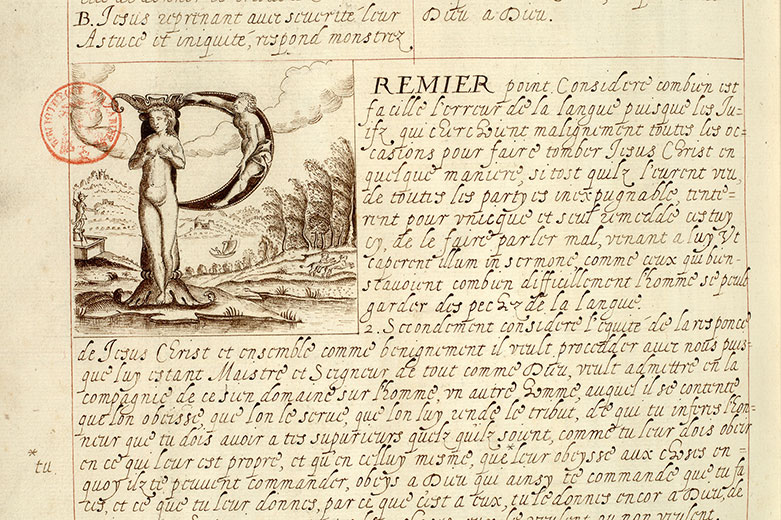 B. Jesus reprenant avec severité leur
Astuce et iniquité, respond monstrez
Dieu a Dieu.
PREMIER point. Considere combien est
facille l'erreur de la langue puisque les Ju-
ifz qui cherchoient malignement toutes les oc-
casions pour faire tomber Jesus Christ en
quelque maniere, si tost quilz l'eurent veu,
de toutes les partyes inexpugnable, tente-
rent pour vnicque et seul remedde cestuy
cy, de le faire parler mal, venant a luy Vt
caperent illum in sermone comme ceux qui bien
scavoient combien difficillement l'homme se peult
garder des pechez de la langue.
2. Secondement considere l'equité de la responce
de Jesus Christ et ensemble comme benignement il veult procedder avec nous puis-
que luy estant Maistre et Seigneur de tout comme Dieu, veult admettre en la
compagnie de ce sien domaine sur l'homme, vn autre homme, auquel il se contente
que lon obeisse, que lon le serue, que lon luy rende le tribut, de qui tu inferes l'hon-
neur que tu dois avoir a tes superieurs quelz quilz soient, comme tu leur dois obeir
en ce qui leur est propre, et qu'en celluy mesme, que *leur obeysse aux choses en
*tu
quoy ilz te peuvent commander, obeys a Dieu qui ainsy te commande que tu fa
ces, et ce que tu leur donnes, par ce que c'est a eux, tu le donnes encor a Dieu, de
veulent ou non veulent